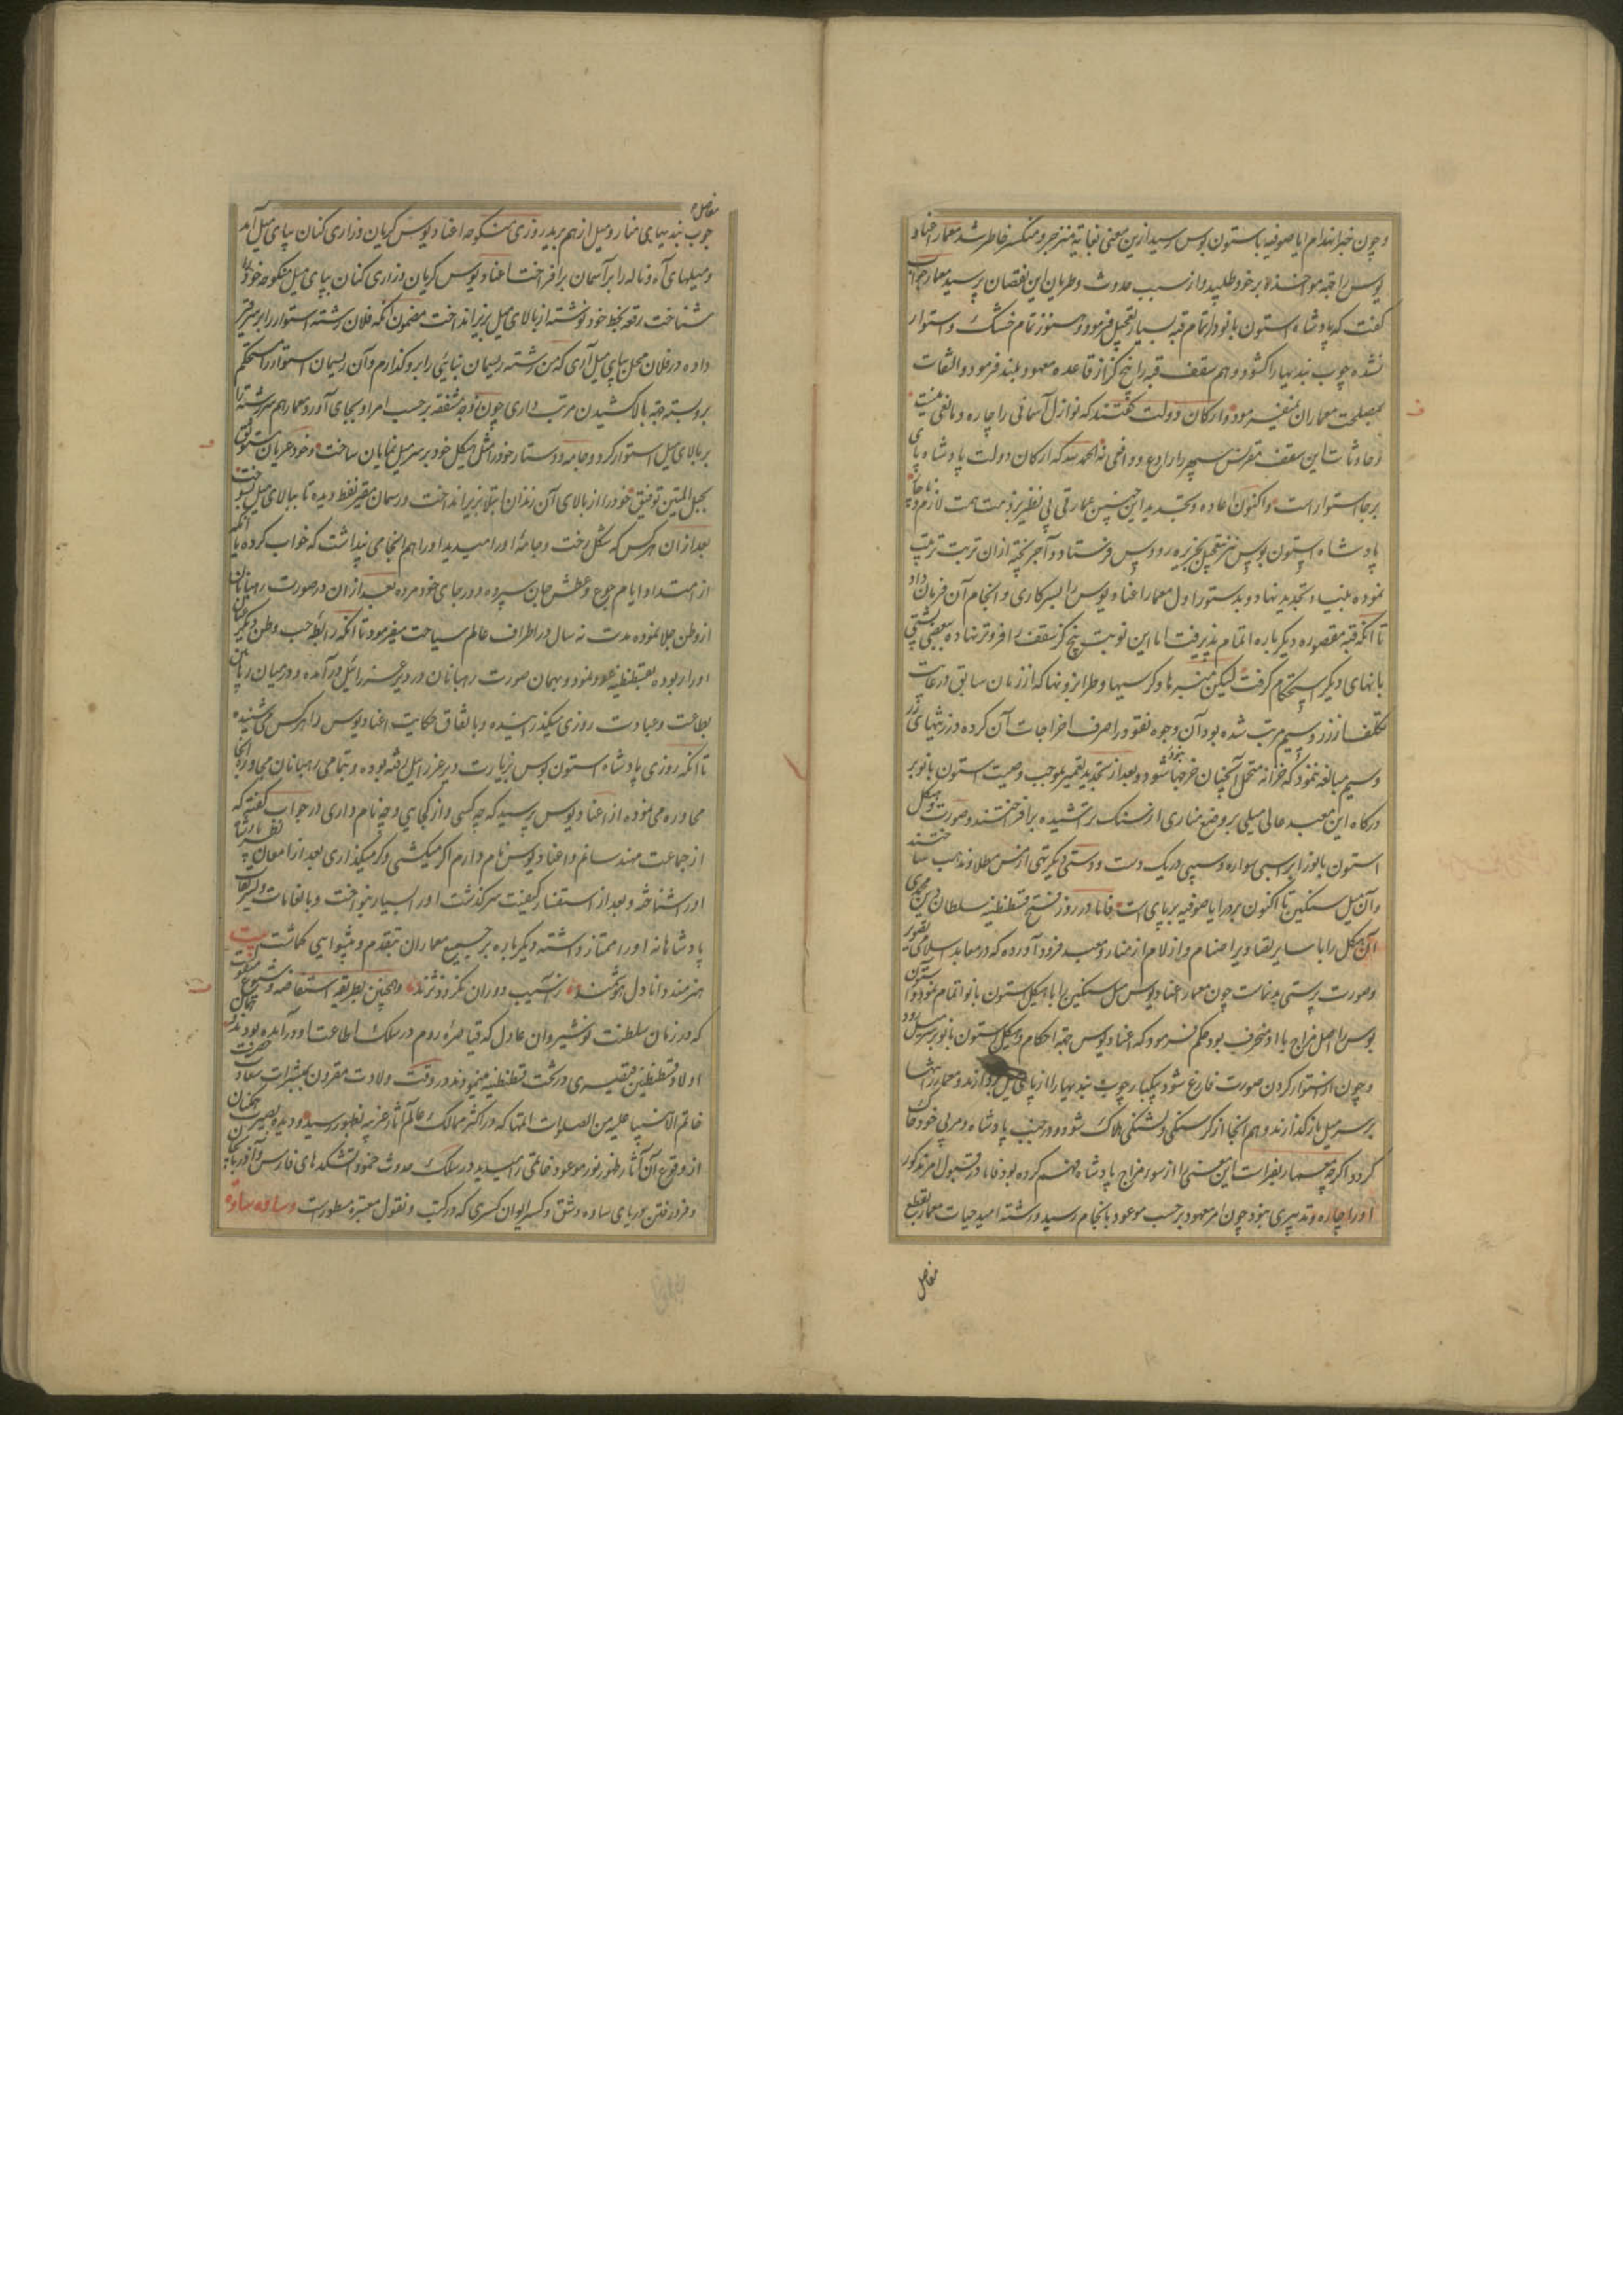 و چون خبر انهدام ایاصوفیه باستون بوس رسید ازین معنی بغایة منزجر و منکسر خاطر شد معمار اغناد
یوس را جهة مواخذه بر خود طلبید و از سبب حدوث و طریان این نقصان پرسید معمار جواب
گفت که پادشاه استون بانو در اتمام قبه بسیار تعجیل فرمود و هنوز تمام خشک و ستوار
نشده چوب بندیها را گشود و هم سقف قبه را پنج گز از قاعده معهود بلند فرمود و التفات
بمصلحت معماران نفرمود و ارکان دولت گفتند که نوازل آسمانی را چاره و مانعی نیست
ز حادثات این سقف مقرنس سپهر را رادع و دافعی نه الحمد لله که ارکان دولت پادشاه پای
برجا استوار است و اکنون اعاده و تجدید این چنین عمارتی بی نظیر بر ذمت همت لازم
پادشاه استون بوس نیز بتعجیل بجزیره رودوس فرستاد و آجر پخته از ان تربت ترتیب
نموده بنیاد تجدید نهاد و بدستور اول معمار اغنادیوس را بسرکاری و انجام آن فرمان داد
تا آنکه قبه مقصوره دیگر باره اتمام پذیرفت اما این نوبت پنج گز سقف را فروتر نهاده
بانهای دیگر استحکام گرفت لیکن منبرها و کرسیها و طرابزونها که از زمان سابق در غایت
تکلف از زر و سیم مرتب شده بود آن وجوه نقود را صرف اخراجات آن کرده در زینتهای زر
و سیم مبالغه ننمود که خزانه متحمل آنچنان خرجها نبود و بعد از تجدید تعمیر بموجب وصیت استون بانو بر
درگاه این معبد عالی میلی بر وضع مناری از سنگ تراشیده برافراختند و صورت و هیکل
استون بانو را بر اسبی سواره و سیبی در یک دست و دستی دیگر تهی از مس مطلا و مذهب ساختند
و آن میل سنگین تا اکنون بر در ایاصوفیه بر پای است فاما در روز فتح قسطنطنیه سلطان دین محمدی
آن هیکل را با سایر تصاویر اصنام و ازلام از منار و معبد فرود آورده که در معابد اسلامی تصویر
و صورت پرستی بدنماست چون معمار اغنادیوس میل سنگین را با هیکل استون بانو اتمام نمود و استون
بوس را اصل مزاج با او منحرف بود حکم فرمود که اغنادیوس جهة احکام هیکل استون بانو بر سر میل رود
و چون از استوار کردن صورت فارغ شود بیکبار چوب بندیها را از پای میل بردارند و معمار را تنها
بر سر میل باز گذارند و هم انجا از گرسنگی و تشنگی هلاک شود و در جنب پادشاه و مربی خود خاک
گردد اگرچه معمار بفراست این معنی را از سوء مزاج پادشاه فهم کرده بود فاما در قبول امر مذکور
او را چاره و تدبیری نبود چون امر معهود بر حسب موعود بانجام رسید و رشته امید حیات معمار بقطع
مفاصل
مفاصل
چوب بندیهای منار و میل از هم برید روزی منکوحه اغنادیوس گریان و زاری کنان بپای میل آمد
و میلهای آه و ناله را بر آسمان برافراخت اغنادیوس گریان و زاری کنان بپای میل منکوحه خود را
شناخت رقعه بخط خود نوشته از بالای میل بزیر انداخت مضمون آنکه فلان رشته استوار را
داده در فلان محل بپای میل آری که من رشته ریسمان بنائی را برو گذارم و آن ریسمان استوار را مستحکم
برو بسته جهة بالا کشیدن مرتب داری چون زوجه مشفقه بر حسب امر او بجای آورد معمار هم سر رشته را
بر بالای میل استوار کرد و جامه و دستار خود را مثل هیکل خود بر سر میل نمایان ساخت و خود عریان
بحبل المتین توفیق خود را از بالای آن زندان ابتلا بزیر انداخت و ریسمان
بعد از ان هر کس که شکل رخت و جامهٔ او را میدید او را هم انجا می پنداشت که خواب کرده یا آنکه
از امتداد ایام جوع و عطش جان سپرده و در جای خود مرده بعد از ان در صورت رهبانان
از وطن جلا نموده مدت نه سال در اطراف عالم سیاحت میفرمود تا آنکه رابطه حب وطن
او را ربوده بقسطنطنیه عود نمود و بهمان صورت رهبانان در دیر عزرائیل در آمده و در میان رهبانان
بطاعت و عبادت روزی میگذرانیده و باتفاق حکایت اغنادیوس را هر کس می شنیده
تا آنکه روزی پادشاه استون بوس بزیارت دیر عزرائیل رفته بوده و بتمامی رهبانان مجاور انجا
محاوره می نموده از اغنادیوس پرسید که چه کسی و از کجایی و چه نام داری در جواب گفته که
از جماعت مهندسانم و اغنادیوس نام دارم اگر میکشی و گر میگذاری بعد از امعان نظر پادشاه
او را شناخته و بعد از استفسار کیفیت سرگذشت او را بسیار بنواخت و بانعامات و تشریفات
پادشاهانه او را ممتاز داشته دیگر باره بر جمیع معماران بتقدم و پیشوایی گماشت بیت
هنرمند دانا دل هوشمند ز آسیب دوران نگردد نژند و همچنین بطریقه استفاضه و شیوع منقول
که در زمان سلطنت نوشیروان عادل که قیاصرهٔ روم در سلک اطاعت او در آمده بودند
اولاد قسطنطین قیصری در تخت قسطنطنیه مینمودند در وقت ولادت مقرون ببشرات سعادات حضرت
خاتم الانبیا علیه من الصلوات اتمها که در اکثر ممالک عالم آثار غریبه بظهور رسید و دیده بصیرت همگنان
از وقوع آن آثار ظهور نور موعود خاتمی را میدید در سلک حدوث خمود آتشکدهای فارس و آذربایجان
و فرو رفتن دریای ساوه و شق و کسر ایوان کسری که در کتب و نقول معتبره مسطور است و ساءه ساوه